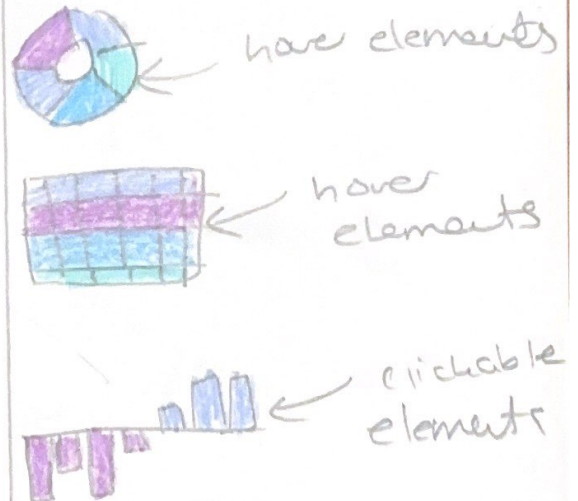 hover elements
hover
elements
clickable
elements